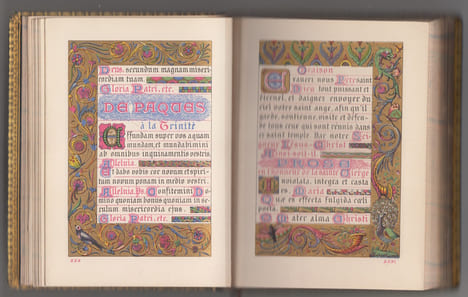 Deus, secundum magnam miseri
cordiam tuam.
Gloria Patri, etc.
DE PAQUES
à la Trinité
Effundam super vos aquam
mundam, et mundabimini
ab omnibus inquinamentis vestris.
Alleluia.
Et dabo vobis cor novum et spiri-
tum novum ponam in medio vestri.
Alleluia. Ps. Confitemini Do
mino quoniam bonus quoniam in
seculum misericordia ejus.
Gloria Patri, etc.
Oraison
Exaucez nous Père saint
Dieu tout puissant et
éternel, et daignez envoyer du
ciel votre saint ange, afin qu'il
garde, soutienne, visite et défen-
se tous ceux qui sont réunis dans
ce saint temple Par notre Sei-
gneur Jésus Christ
A PROSE
à l'honneur de la sainte Vierge
Inviolata, integra et casta
es, Maria
Que es effecta fulgida cœli
porta
Mater alma Christi